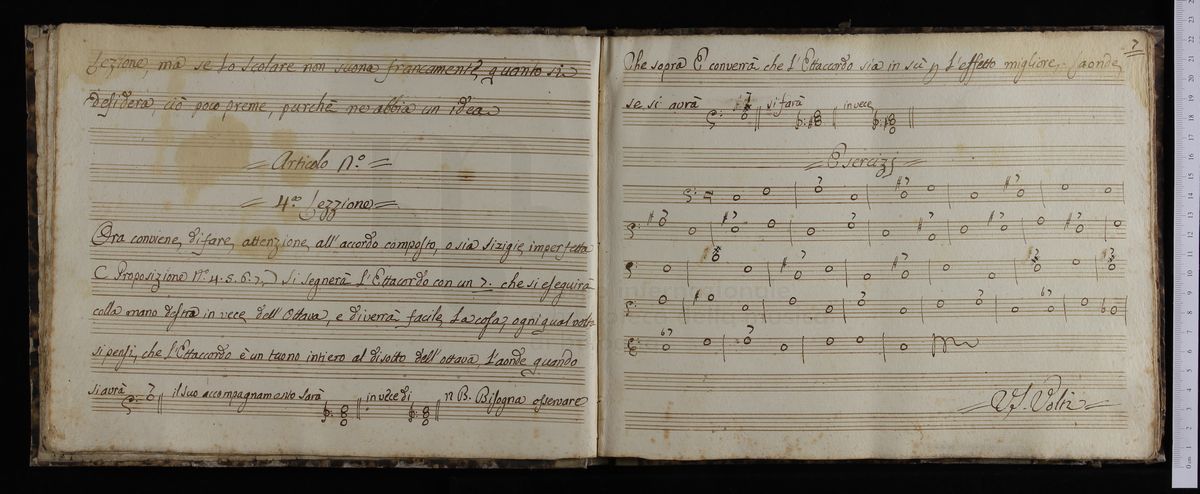 Lezione, ma se lo scolare non suona francamente, quanto si
desidera, ciò poco preme, purchè ne abbia un idea
Articolo N.º
4.ª Lezzione
Ora conviene, di fare, attenzione, all'accordo composto, o sia sizigie imperfetta
( Proposizione N.º 4. 5. 6. 7. ) si segnerà l'Ettacordo con un 7. che si eseguirà
colla mano destra in vece dell'Ottava, e diverrà facile, la cosa, ogni qual volta
si pensi, che l'Ettaccordo è un tuono intiero al disotto dell'ottava, l'aonde quando
si avrà il suo accompagnamento sarà in vece di N B. Bisogna osservare
7
Che sopra E converrà che l'Ettacordo sia in l'effetto migliore, laonde,
se si avrà si farà in vece
Esercizj
V.S. Volti